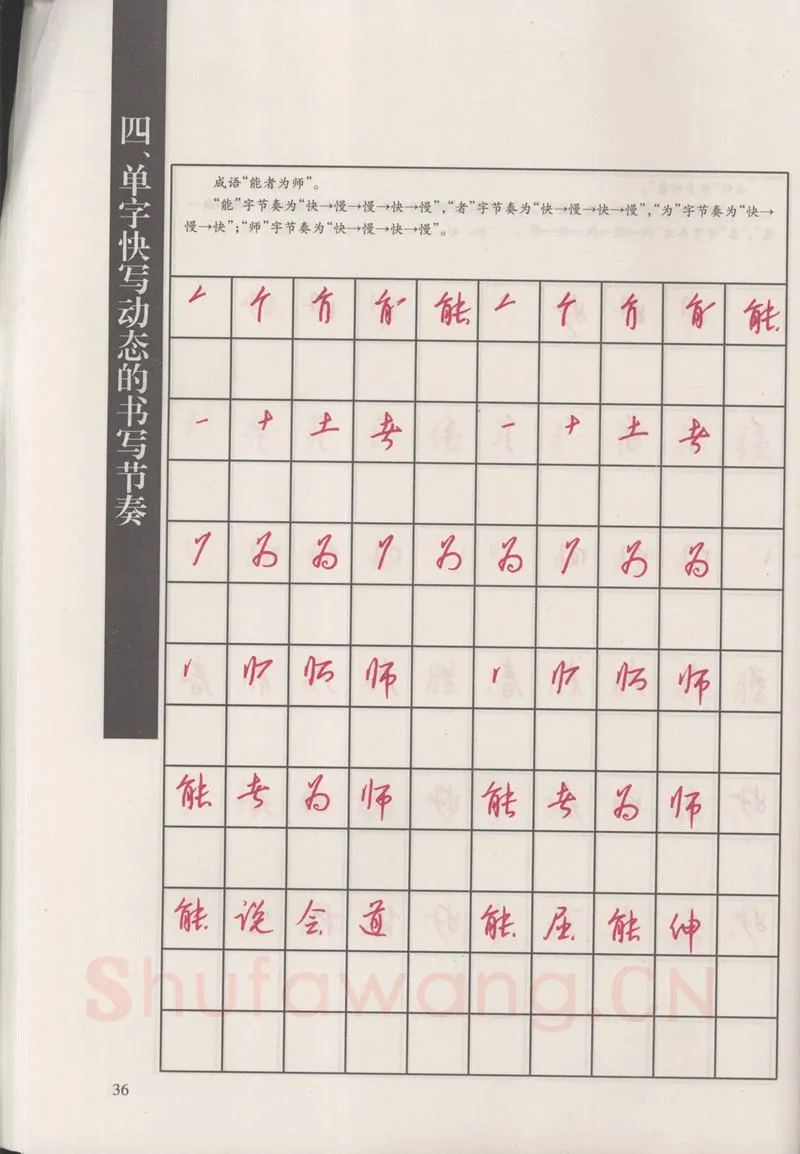 四、单字快写动态的书写节奏
成语“能者为师”。
“能”字节奏为“快→慢→慢→快→慢”,“者”字节奏为“快→慢→快→慢”,“为”字节奏为“快→
慢→快”;“师”字节奏为“快→慢→快→慢”。
能 能
一 十 土 者 一 十 土 者
为 为 为 为 为 为
师 师
能 者 为 师 能 者 为 师
能 说 会 道 能 屈 能 伸
Shufawang.CN
36